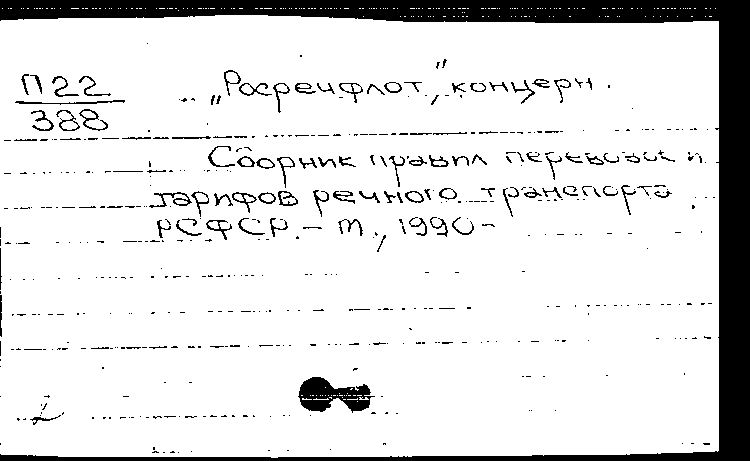 П22
388
„Росречфлот," концерн.
Сборник правил перевозок и
тарифов речного транспорта
РСФСР. – М., 1990–
2